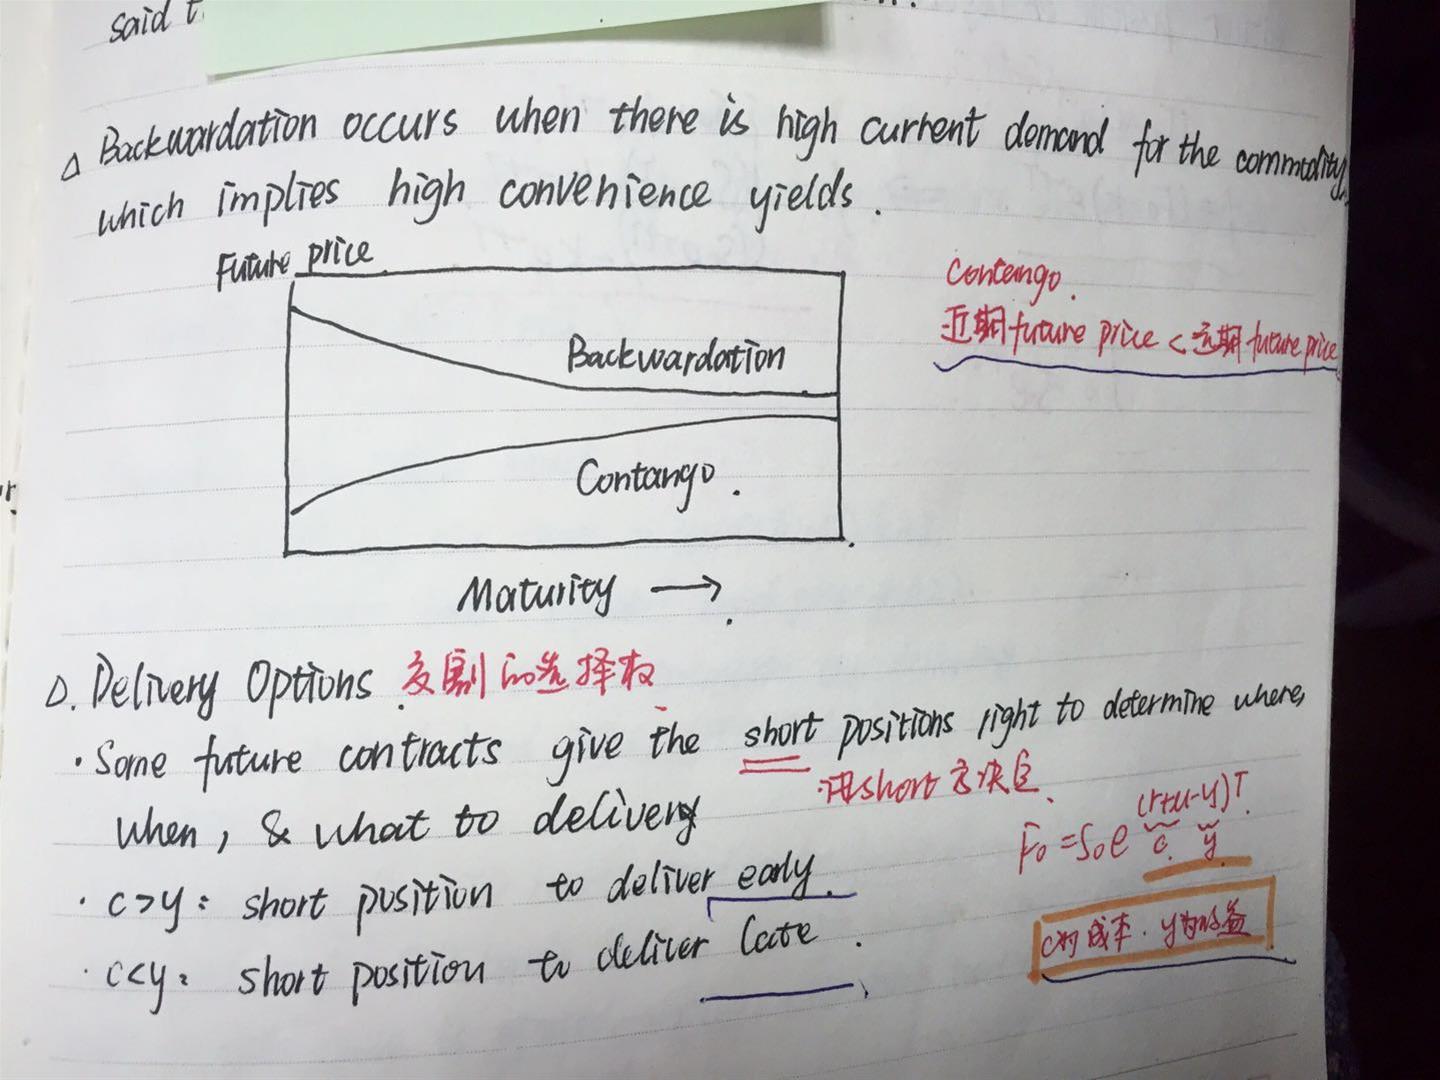 said t
△ Backwardation occurs when there is high current demand for the commodity,
which implies high convenience yields.
Future price
Backwardation
Contango.
Maturity →
Contango.
近期future price < 远期future price
△. Delivery Options. 交割的选择权
· Some future contracts give the short positions right to determine where,
when, & what to delivery
由short方决定
· c>y: short position to deliver early.
· c<y: short position to deliver late.
F₀ = S₀e^(r+u-y)T
c y
c为成本. y为收益